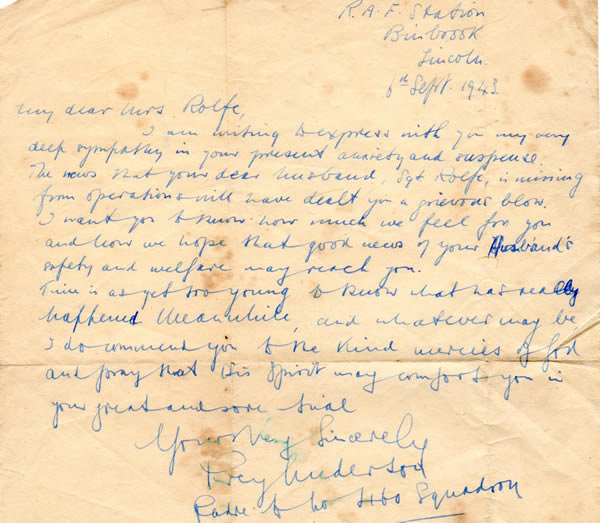 R.A.F. Station
Binbrook
Lincoln.
6th Sept. 1943.
My dear Mrs. Rolfe,
I am writing to express with you my very
deep sympathy in your present anxiety and suspense.
The news that your dear husband, Sgt Rolfe, is missing
from operations will have dealt you a grievous blow.
I want you to know how much we feel for you
and how we hope that good news of your Husband's
safety and welfare may reach you.
Time is as yet too young to know what has really
happened. Meanwhile, and whatever may be
I do commend you to the kind mercies of God
and pray that His Spirit may comfort you in
your great and sore trial
Yours Very Sincerely
Anderson
Padre to No 460 Squadron